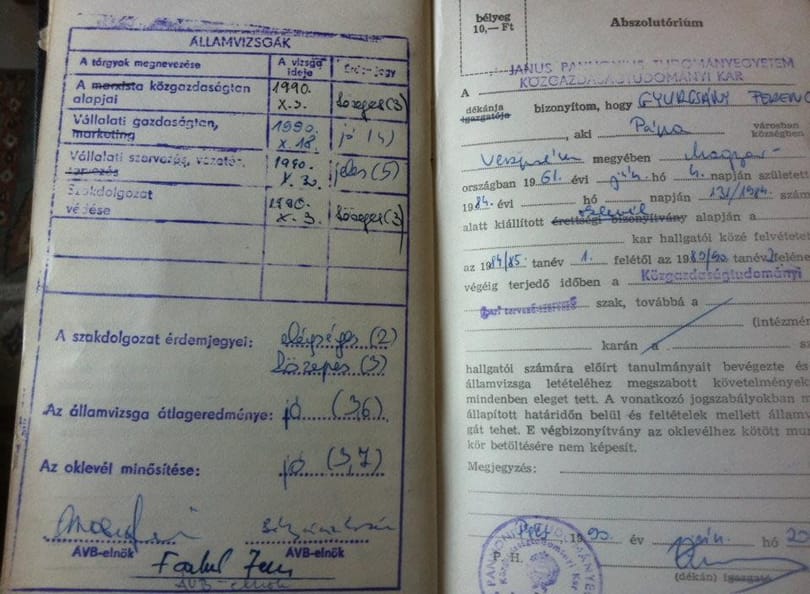 ÁLLAMVIZSGÁK
A tárgyak megnevezése
A vizsga ideje
Érdemjegy
A marxista közgazdaságtan alapjai
1990. X.3.
közepes (3)
Vállalati gazdaságtan, marketing
1990. X.18.
jó (4)
Vállalati szervezés, vezetés, tervezés
1990. X.30.
jeles (5)
Szakdolgozat védése
1990. X.3.
közepes (3)
A szakdolgozat érdemjegyei: elégséges (2)
közepes (3)
Az államvizsga átlageredménye: jó (3,6)
Az oklevél minősítése: jó (3,7)
AVB-elnök
AVB-elnök
AVB-elnök
bélyeg
10,— Ft
Abszolutórium
JANUS PANNONIUS TUDOMÁNYEGYETEM
KÖZGAZDASÁGTUDOMÁNYI KAR
A
dékánja
igazgatója bizonyítom, hogy GYURCSÁNY FERENC
, aki Pápa városban
községben
Veszprém megyében Magyar-
országban 1961. évi jún. hó 4. napján született
1984. évi hó napján 131/1984. szám
alatt kiállított érettségi bizonyítvány alapján a
kar hallgatói közé felvétetett
az 1984/85. tanév 1. felétől az 1989/90. tanév 2. felének
végéig terjedő időben a Közgazdaságtudományi
Ipari tervező-szervező szak, továbbá a
(intézmén
karán a sz
hallgatói számára előírt tanulmányait bevégezte és
államvizsga letételéhez megszabott követelmények
mindenben eleget tett. A vonatkozó jogszabályokban m
állapított határidőn belül és feltételek mellett állam
gát tehet. E végbizonyítvány az oklevélhez kötött mun
kör betöltésére nem képesít.
Megjegyzés:
1990 év jún. hó 20
P. H.
(dékán) igazgató